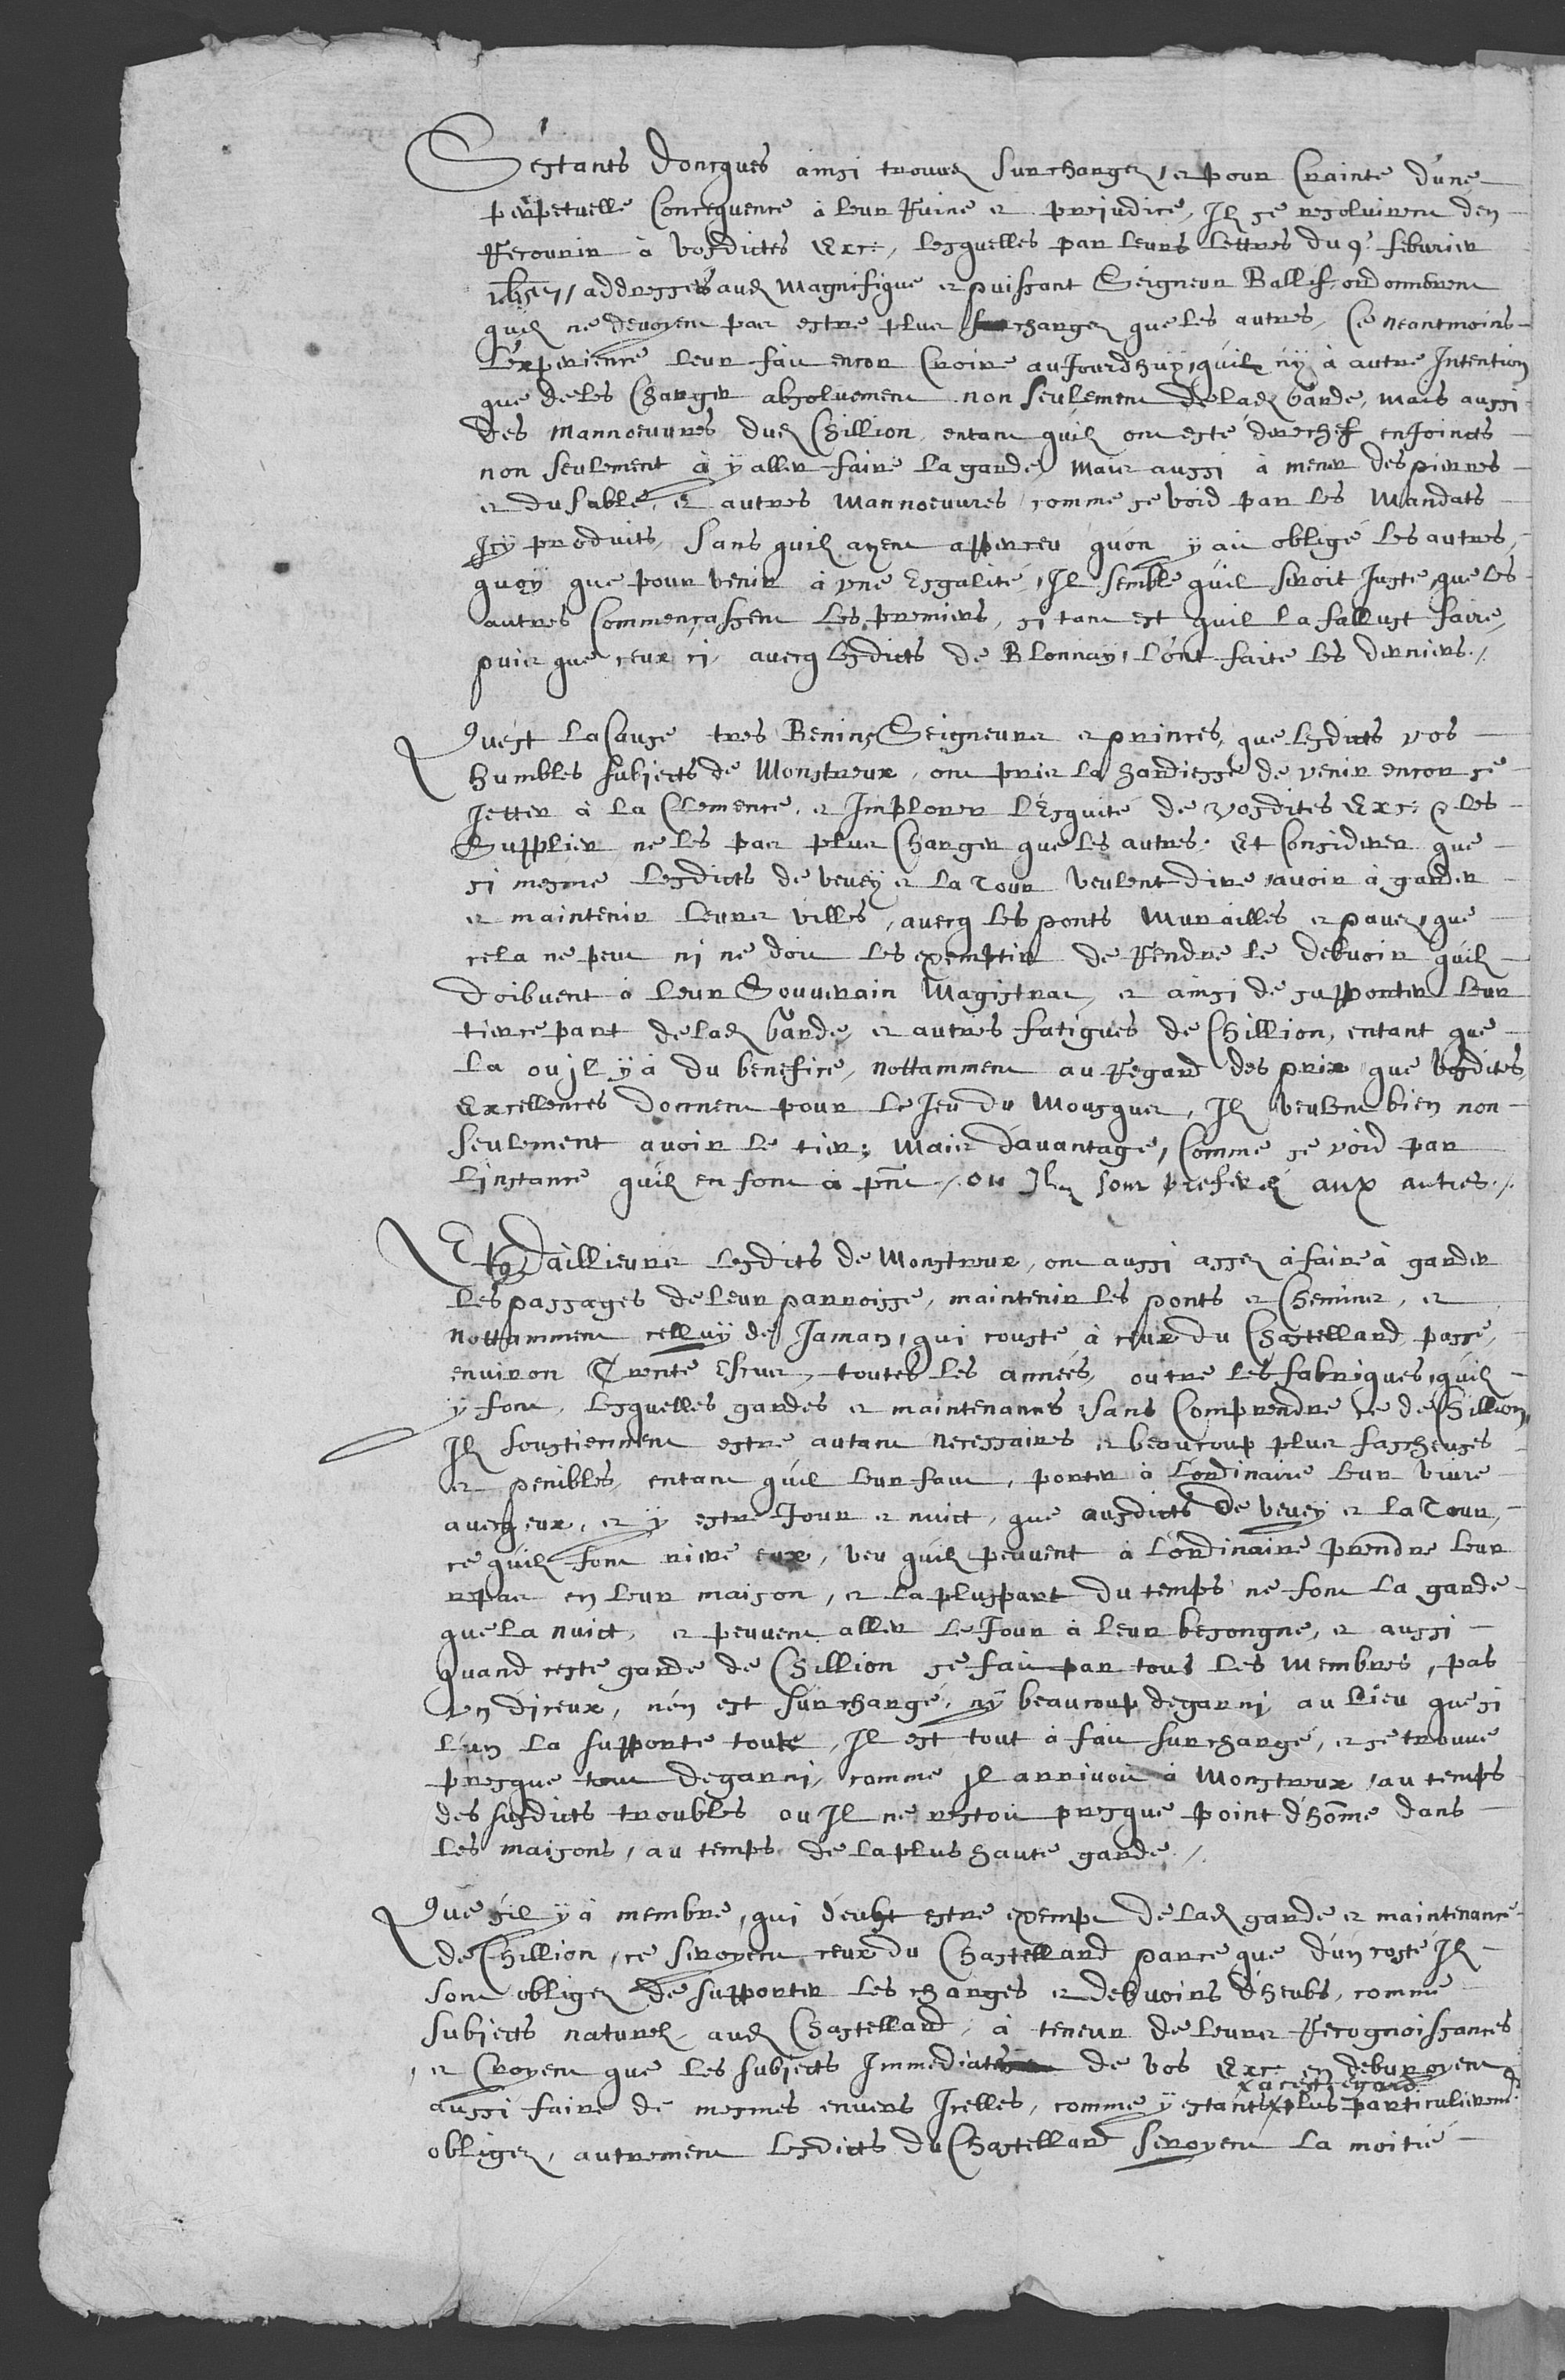 S'estants doncques ainsi trouvez surchargez, et pour Crainte d'une
perpetuelle Consequence à leur Ruine et prejudice, Ilz se resolvirent d'en
Recourir à vosdictes Exc:, lesquelles par leurs lettres du 9e. febvrier
addressées audz Magnifique et puissant Seigneur Ballif, ordonnerent
quilz ne devoyent pas estre plus chargez que les autres, Ce neantmoins
L'experience leur fait encor Croire auJourdhuy, quilz n'y à autre Intention
que de les Charger absoluement non seulement de ladz Garde, mais aussi
des mannoeuvres dudz Chillion, entant quilz ont esté derechef enJoincts
non seulement à y aller faire la garde, mais aussi à mener des pierres
et du sable, et autres mannoeuvres, comme se void par les Mandats
Icy produits, sans quilz ayent apperceu qu'on y ait obligé les autres,
quoy que pour venir à vne Esgalité, Il semble quil seroit Juste, que les
autres Commençassent les premiers, si tant est quil la fallust faire,
puis que ceux ci, avecq lesdicts de Blonnay, l'ont faite les derniers./.
Qu'est la Cause tres Benins Seigneurs et princes, que lesdicts vos
humbles subjects de Monstreux, ont pris la hardiesse de venir encor se
Jetter à la Clemence, et Implorer l'Esquité de vosdites Exc: et les
Supplier ne les pas plus Charger que les autres. Et Considerer que
si mesme lesdicts de Vevey et la Tour veulent dire avoir à garder
et maintenir leurs villes, avecq les ponts murailles et pavez, que
cela ne peut ni ne doit les exempter de Rendre le debvoir quilz
doibvent à leur Souverain Magistrat, et ainsi de supporter leur
tierce part de ladz Garde, et autres fatigues de Chillion, entant que
la ou jl y à du benefice, nottamment au Regard des prix que vosdites
Excellences donnent pour le Jeu du Mousquet, Ilz veulent bien non
seulement avoir le tier; mais d'avantage, Comme se void par
L'instance quilz en font à pnt /. ou Ilz sont preferéz aux autres./.
Et d'aillieurs lesdits de Monstreux, ont aussi assez à faire à garder
les passages de leur parroisse, maintenir les ponts et Chemins, et
nottamment celluy de Jaman, qui couste à ceux du Chastellard passé,
environ Trente Escus, toutes les années, outre les fabriques, quilz
y font, lesquelles gardes et maintenances sans Comprendre ce de Chillion,
Ilz soustiennent estre autant necessaires et beaucoup plus fascheuses
et penibles, entant quil leur faut, porter à l'ordinaire leur vivre
avecq eux, et y estre Jour et nuict, que ausdicts de Vevey et la Tour,
ce quilz font riere eux, veu quilz peuvent à l'ordinaire prendre leur
repas en leur maison, et la pluspart du temps ne font la garde
que la nuict, et peuvent aller le Jour à leur besongne, et aussi
quand ceste garde de Chillion se fait par tous les Membres, pas
vn d'iceux, n'en est surchargé, ny beaucoup degarni, au lieu que si
L'un la supporte toute, Il est tout à fait surchargé, et se trouve
presque tout degarni, comme jl arrivoit à Monstreux, au temps
des susdicts troubles ou Il ne restoit presque point d'hom̃e dans
les maisons, au temps de la plus haute garde./.
Que s'il y à membre, qui d'eubt estre exempt de ladz garde et maintenance
de Chillion, ce seroyent ceux du Chastellard parce que d'un costé Ilz
sont obligez de supporter les charges et debvoirs d'heubs, comme
subjects naturelz, audz Chastellard, à teneur de leurs Recognoissances
et Croyent que les subjects Immediats de vos Exc: en debvroyent
x à cest'egard
aussi faire de mesmes envers Icelles, comme y estants x plus particulierem.t
obligez, autrement lesdicts du Chastellard seroyent la moitié